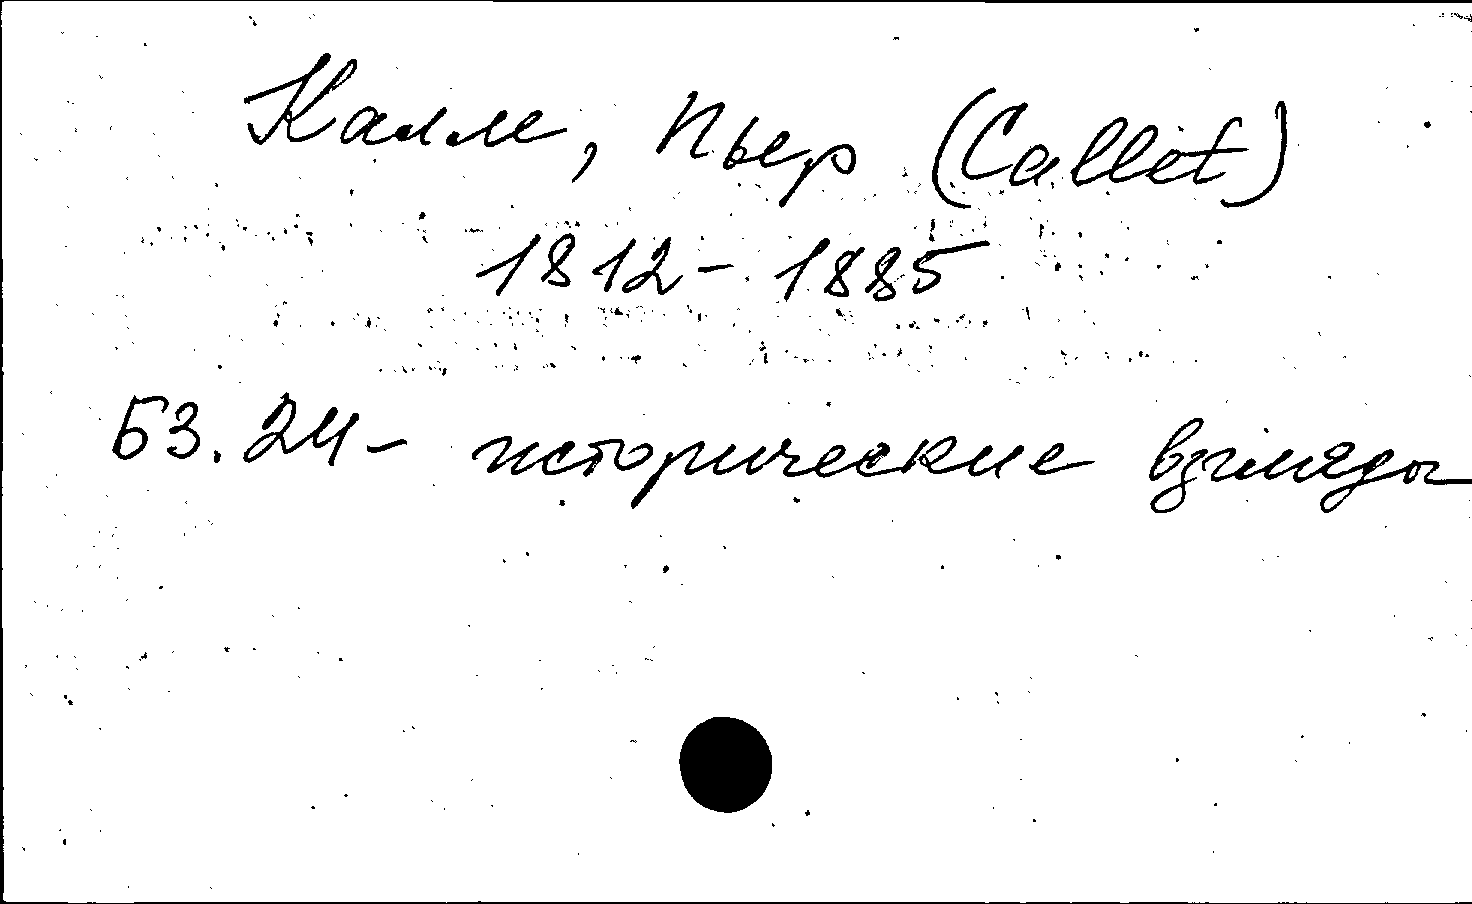 Калле, Пьер (Callet)
1812 - 1885
Б3.24 - исторические взгляды